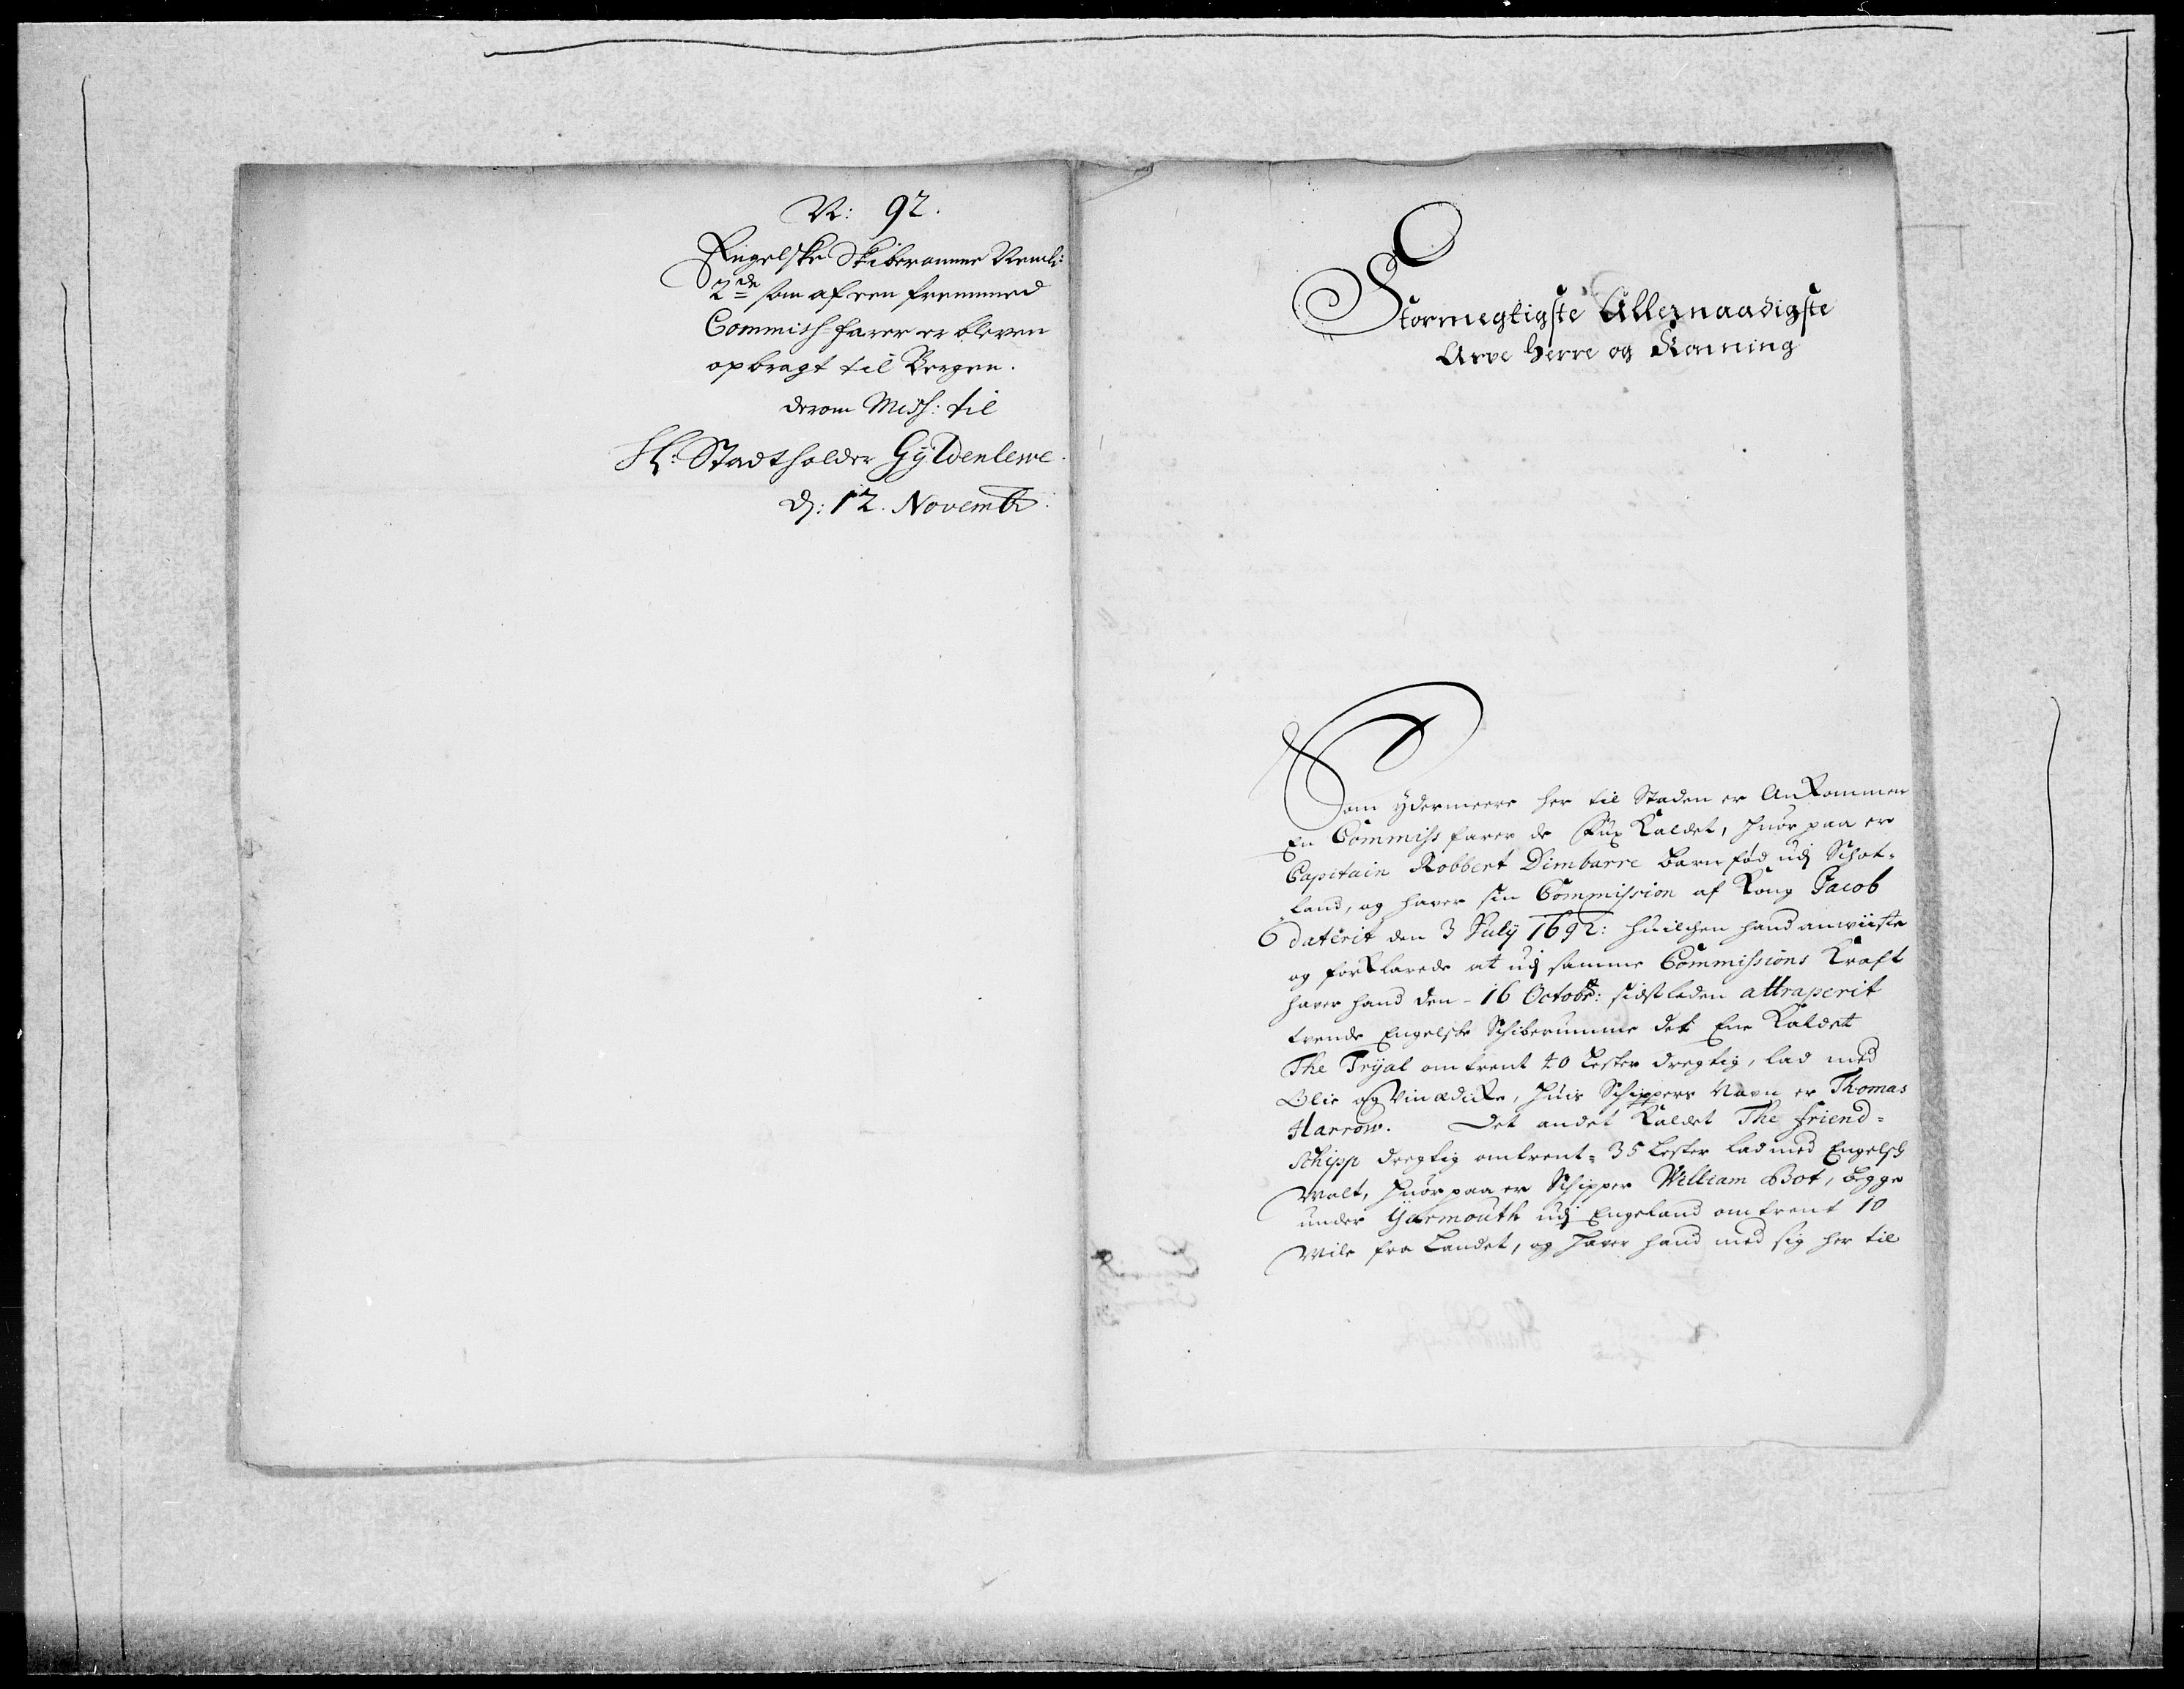 N: 92.
Engelske Skiberomme Neml:
2de som af een fremmed
Commiss-farer er bleven
opbragt til Bergen.
derom Miss: til
H: Stadtholder Gyldenlewe.
d: 12. Novembr:
Stormegtigste Allernaadigste
Arve Herre og Konning
Som ydermeere her til Staden er Ankommen
En Commiss farer de Fux Kaldet, huor paa er
Capitain Robbert Dimbarre barnfød udj Schot-
land, og haver sin Commission af Kong Jacob
daterit den 3 July 1692: huilchen hand anwiiste
og forklarede at udj samme Commissions Kraft
haver hand den - 16 Octobr: sidstleden attraperit
tvende Engelske Schiberumme det Ene Kaldet
The Tryal omtrent 40 Lester dregtig, lad med
Olie og Vinædicke, huis Schippers Navn er Thomas
Harrow. Det andet Kaldet The friend-
schipp dregtig omtrent - 35 Lester lad med Engelsch
Malt, huor paa er Schipper William Bot, begge
under Yarmouth udj Engeland omtrent 10
Mile fra Landet, og haver hand med sig her til